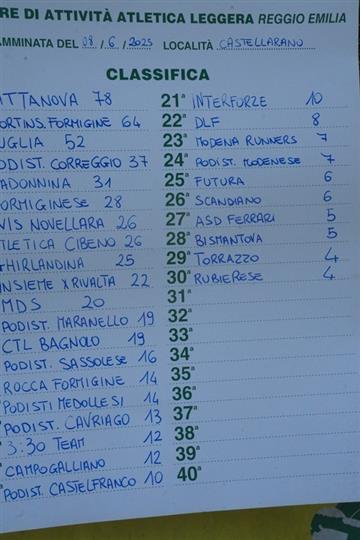 RE DI ATTIVITÀ ATLETICA LEGGERA REGGIO EMILIA
AMMINATA DEL 08 / 6 / 2025 LOCALITÀ CASTELLARANO
CLASSIFICA
ATTANOVA 78 21ª INTERFORZE 10
ORTINS. FORMIGINE 64 22ª DLF 8
UGLIA 52 23ª MODENA RUNNERS 7
ODIST. CORREGGIO 37 24ª PODIST. MODENESE 7
ADONNINA 31 25ª FUTURA 6
ORMIGINESE 28 26ª SCANDIANO 6
VIS NOVELLARA 26 27ª ASD FERRARI 5
TLETICA CIBENO 26 28ª BISMANTOVA 5
GHIRLANDINA 25 29ª TORRAZZO 4
INSIEME X RIVALTA 22 30ª RUBIERESE 4
MDS 20 31ª
PODIST. MARANELLO 19 32ª
CTL BAGNOLO 19 33ª
PODIST. SASSOLESE 16 34ª
ROCCA FORMIGINE 14 35ª
PODISTI MEDOLLESI 14 36ª
PODIST. CAVRIAGO 13 37ª
3:30 TEAM 12 38ª
CAMPOGALLIANO 12 39ª
PODIST. CASTELFRANCO 10 40ª